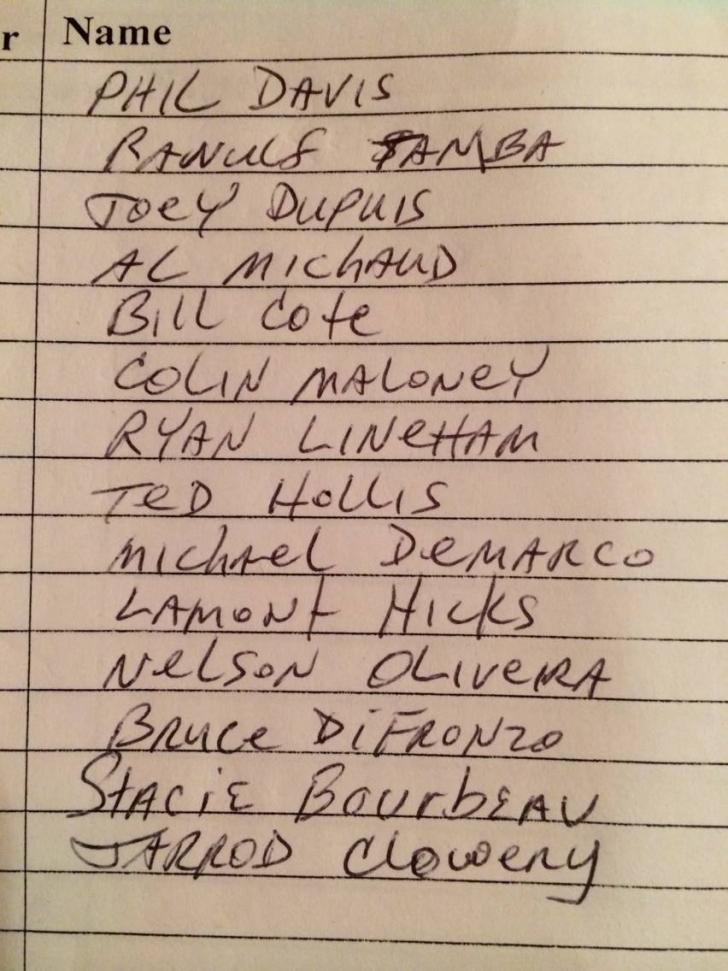 r Name
PHIL DAVIS
RANULF TAMBA
JOEY DUPUIS
AL MICHAUD
Bill Cote
COLIN MALONEY
RYAN LINEHAM
TED HOLLIS
MICHAEL DEMARCO
LAMONT HICKS
NELSON OLIVEIRA
BRUCE DIFRONZO
STACIE BOURBEAU
JARROD Clowery